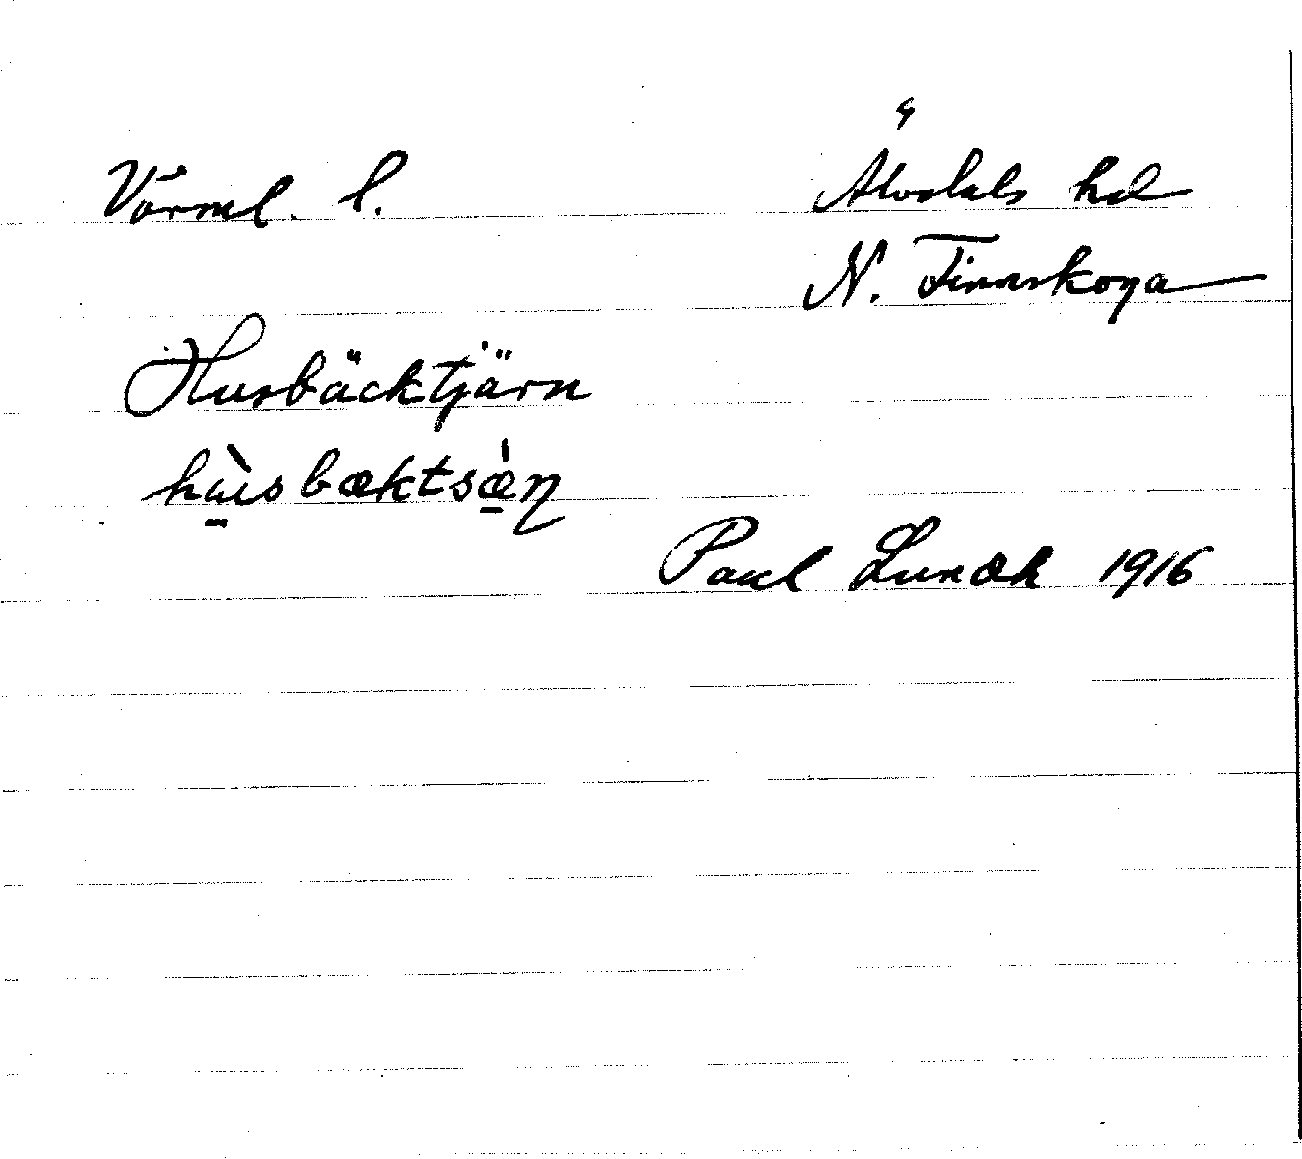 Värml. l. Älvdals hd
N. Finnskoga
Husbäcktjärn
hùsbæktsæ̀ṇ
Paul Lundh 1916